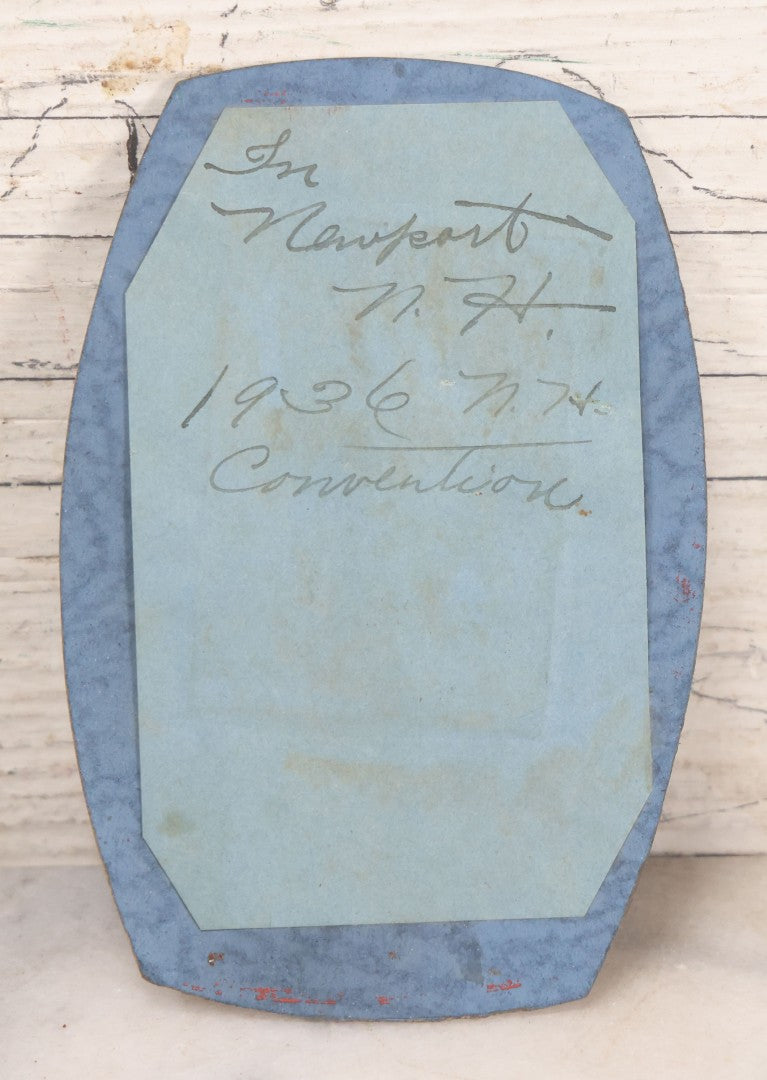 In
Newport
N. H.
1936 N. H.
Convention.